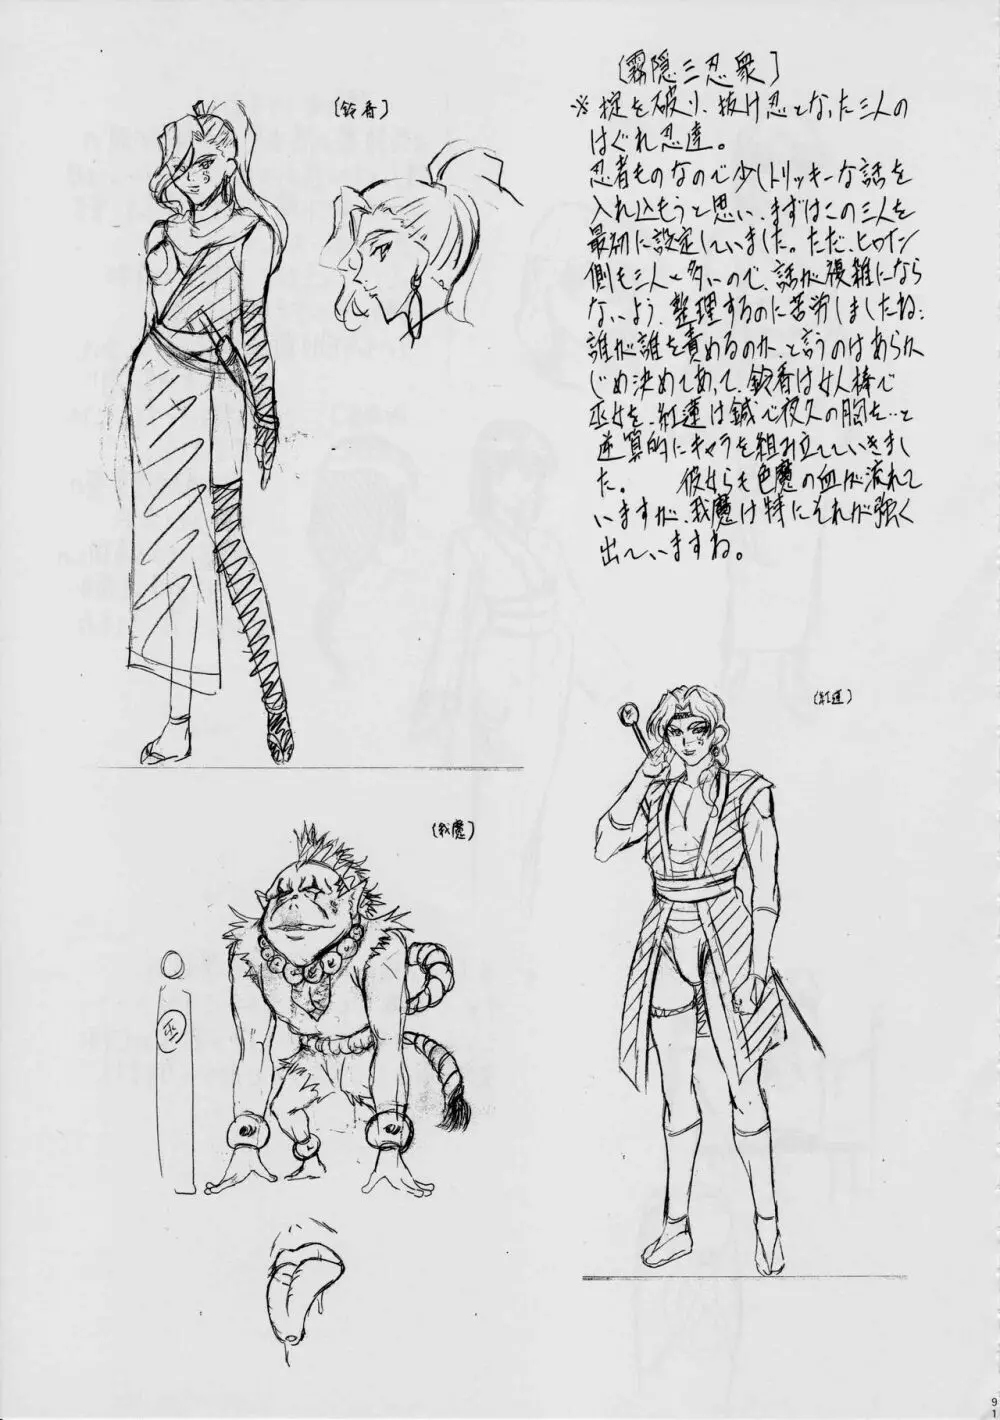 [霧隠三忍衆]
※掟を破り、抜け忍となった三人の
はぐれ忍達。
忍者ものなので少しトリッキーな話を
入れ込もうと思い、まずはこの三人を
最初に設定していました。ただ、ヒロイン
側も三人と多いので、話が複雑になら
ないよう、整理するのに苦労しましたね…
誰が誰を責めるのか、と言うのはあらか
じめ決めてあって、鈴香は女人棒で
巫女を、紅蓮は鍼で夜久の胸を…と
逆算的にキャラを組み立てていきまし
た。 彼女らも色魔の血が流れて
いますが、我魔は特にそれが強く
出ていますね。
[鈴香]
[紅蓮]
[我魔]
巫
91